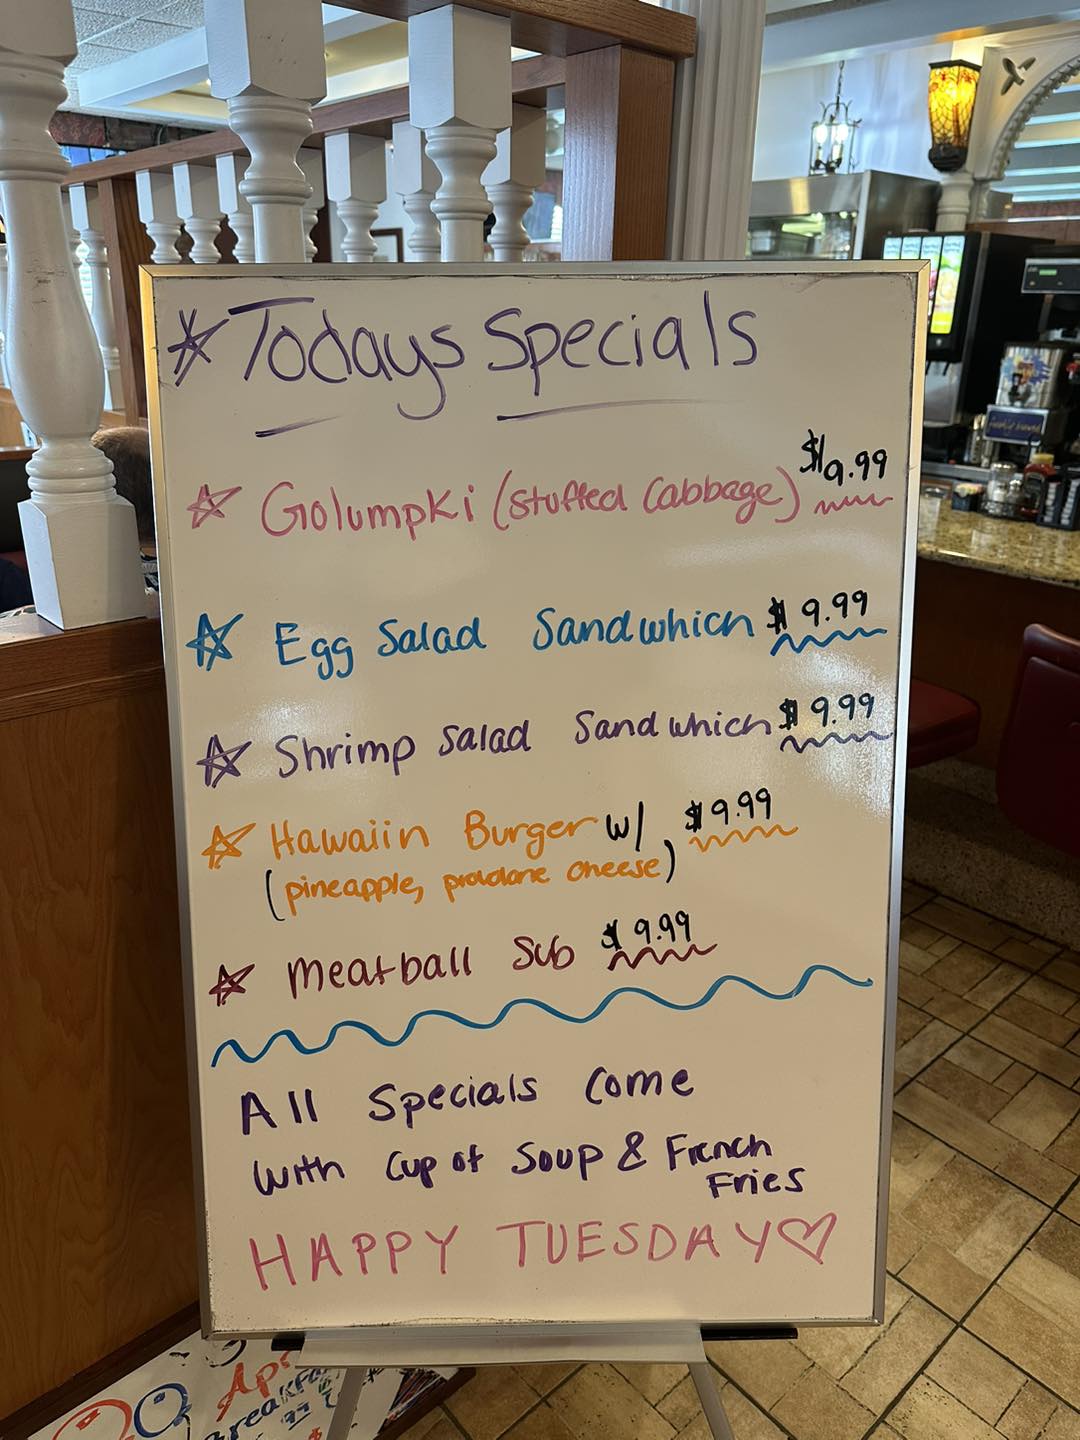 Todays Specials
Golumpki (Stuffed Cabbage) $19.99
Egg Salad Sandwhich $9.99
Shrimp Salad Sandwhich $9.99
Hawaiin Burger w/ $9.99
(pineapple, provolone cheese)
Meatball Sub $9.99
All Specials Come
with Cup of Soup & French
Fries
HAPPY TUESDAY